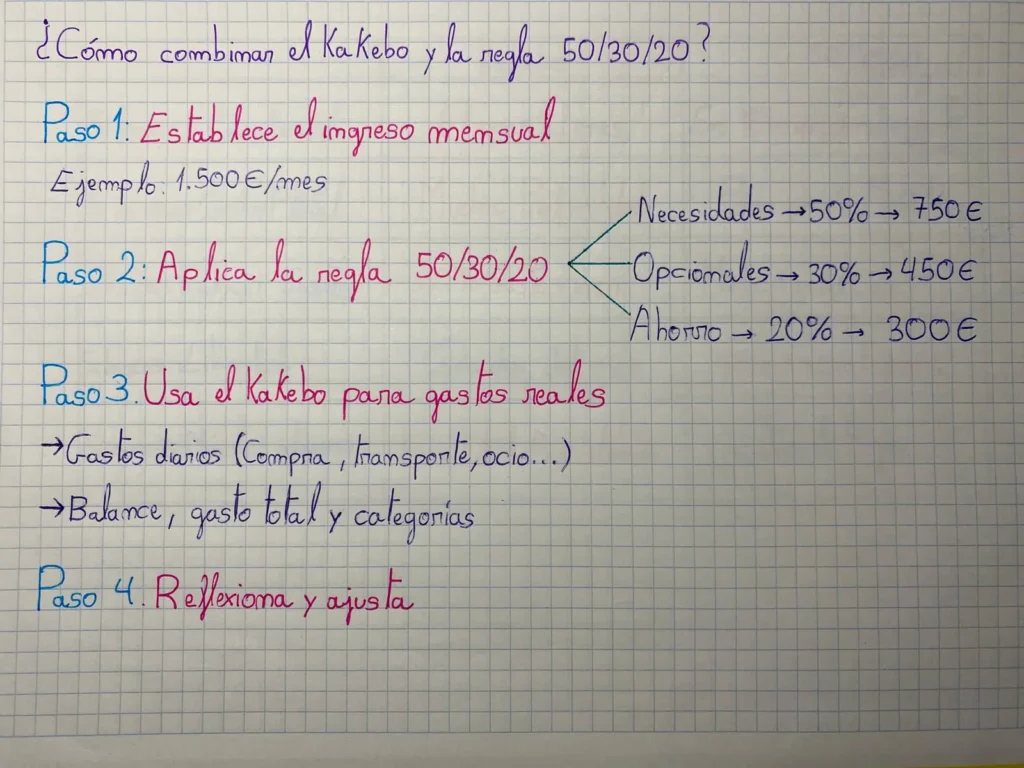 ¿Cómo combinar el Kakebo y la regla 50/30/20?
Paso 1: Establece el ingreso mensual
Ejemplo: 1.500€/mes
Paso 2: Aplica la regla 50/30/20
Necesidades → 50% → 750€
Opcionales → 30% → 450€
Ahorro → 20% → 300€
Paso 3. Usa el Kakebo para gastos reales
→ Gastos diarios (Compra, transporte, ocio...)
→ Balance, gasto total y categorías
Paso 4. Reflexiona y ajusta